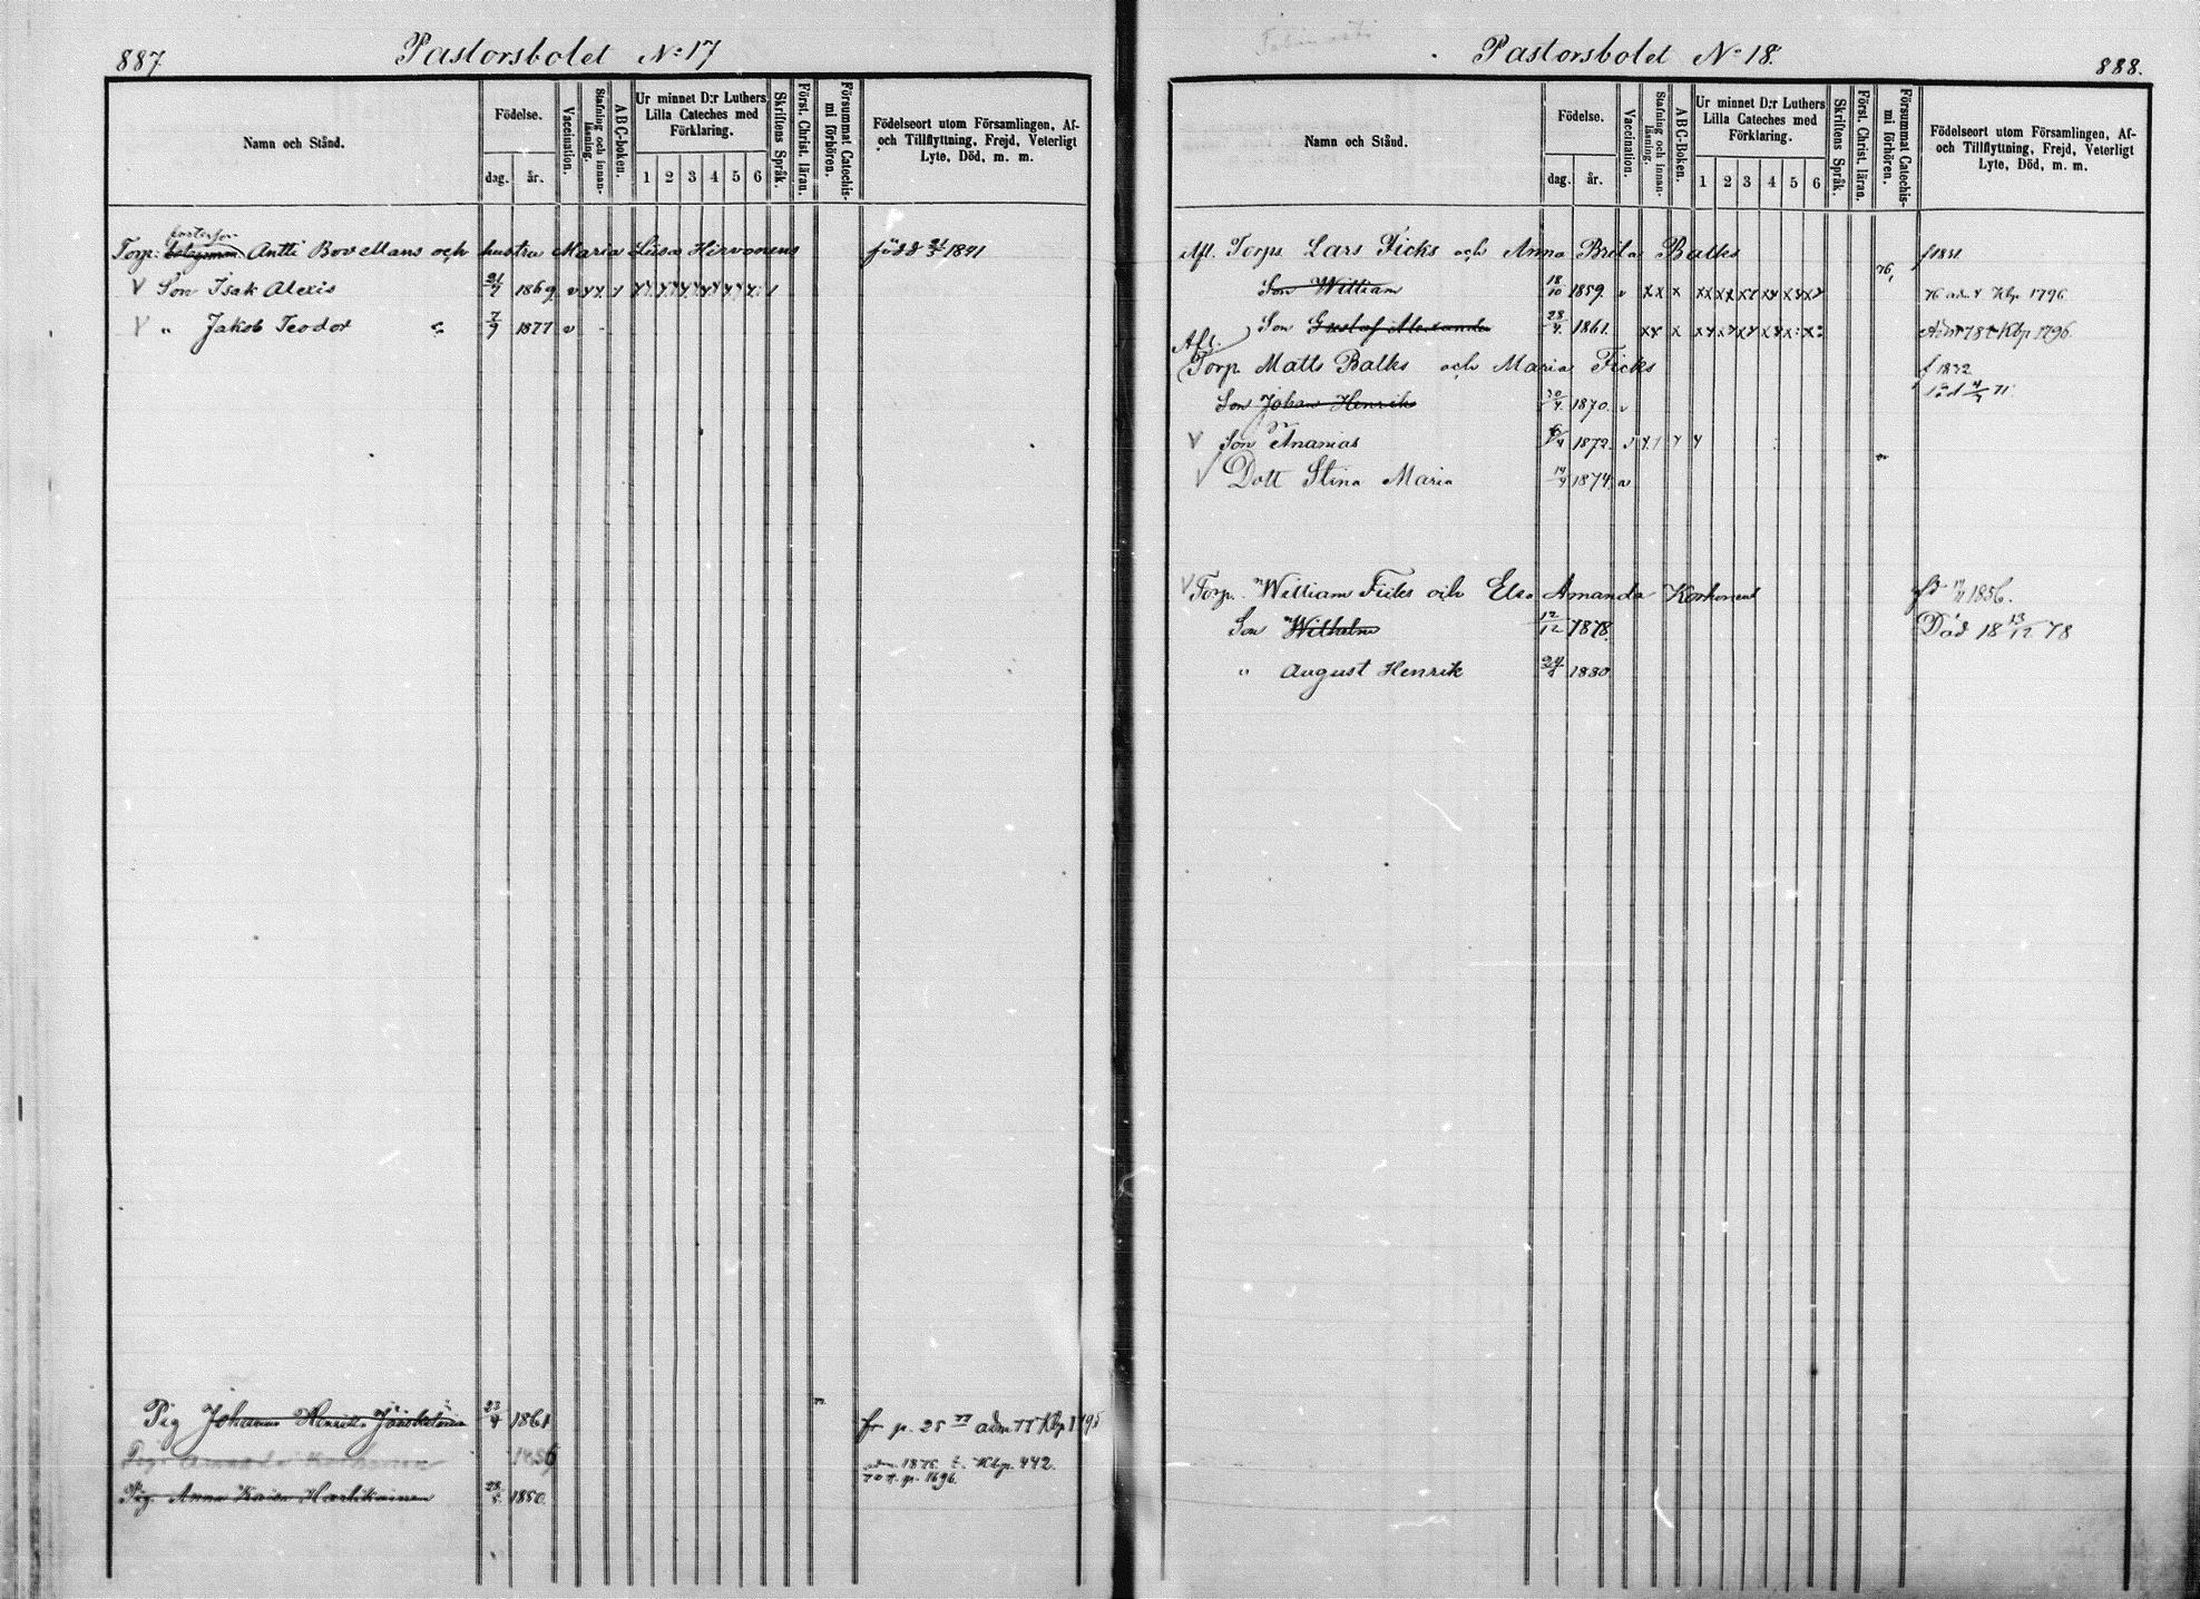 887
Pastorsbolet No: 17
Namn och Stånd.
Födelse.
dag.
år.
Vaccination.
Stafning och innan-
läsning.
ABC-boken.
Ur minnet D:r Luthers
Lilla Cateches med
Förklaring.
1 2 3 4 5 6
Skriftens Språk.
Först. Christ. läran.
Försummat Catechis-
mi förhören.
Födelseort utom Församlingen, Af-
och Tillflyttning, Frejd, Veterligt
Lyte, Död, m. m.
Torp: Antti Bovellans och hustru Maria Liisa Hirvonens född 1841
V Son Isak Alexis 1869 v
V " Jakob Teodor 7/9 1877 v
Pig Johanna Henrika 23/4 1861 fr p. 25
1856 adm 1876 t. Kbp. 442.
p. 1696.
Pig. Anna Kaisa Hartikainen 1850
Pastorsbolet No 18.
888.
Namn och Stånd.
Födelse.
dag.
år.
Vaccination.
Stafning och innan-
läsning.
ABC-Boken.
Ur minnet D:r Luthers
Lilla Cateches med
Förklaring.
1 2 3 4 5 6
Skriftens Språk.
Först. Christ. läran.
Försummat Catechis-
mi förhören.
Födelseort utom Församlingen, Af-
och Tillflyttning, Frejd, Veterligt
Lyte, Död, m. m.
Afl. Torps. Lars Ficks och Anna Brita Balks
Son William 18/10 1859 v 76 adm t Kbp 1796
Son Gustaf Alexander 28/4 1861 Adm 78 t Kbp 1796
Afl.
Torp. Matts Balks och Maria Ficks f 1832
Son Johan Henrik 1870 v
V Son Ananias 1872
V Dott Stina Maria 1874 v
V Torp. William Ficks och Elsa Amanda Korhonens 1856.
Son Wilhelm 12/12 1878 Död 18 13/12 78
" August Henrik 1880